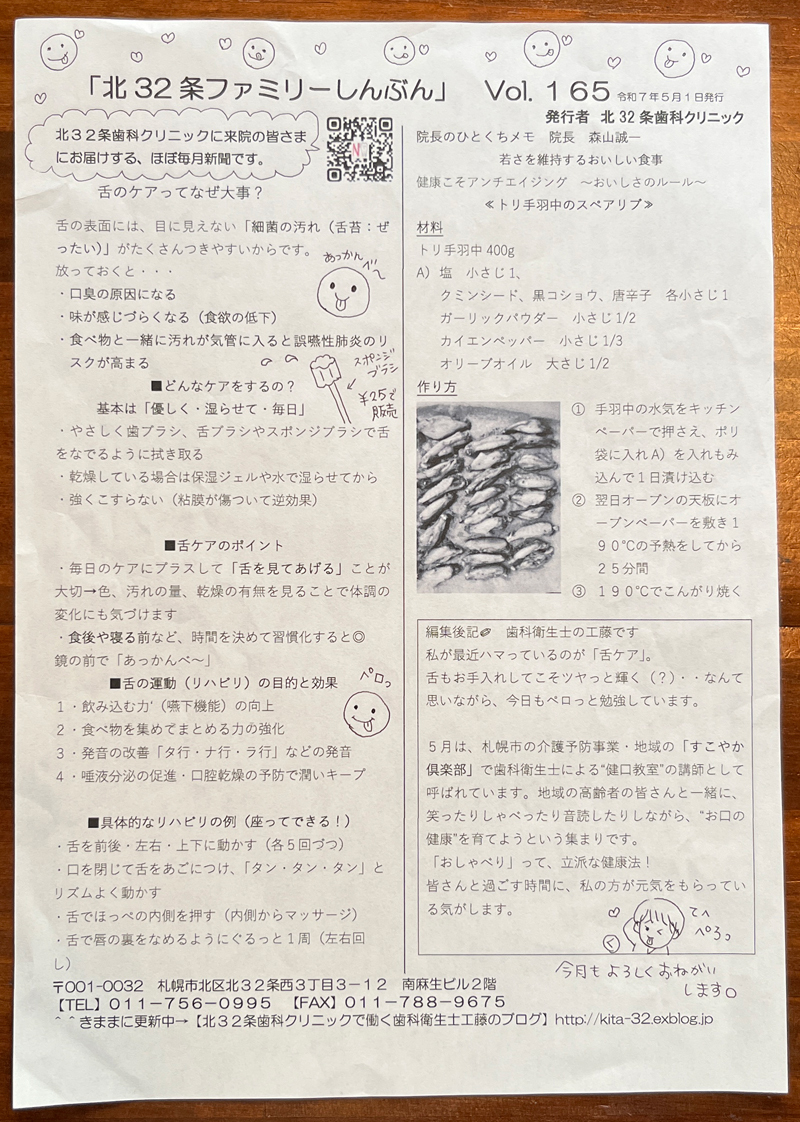 「北32条ファミリーしんぶん」 Vol. 165 令和7年5月1日発行
発行者 北32条歯科クリニック
北32条歯科クリニックに来院の皆さま
にお届けする、ほぼ毎月新聞です。
舌のケアってなぜ大事？
舌の表面には、目に見えない「細菌の汚れ（舌苔：ぜ
ったい）」がたくさんつきやすいからです。
放っておくと・・・
・口臭の原因になる
・味が感じづらくなる（食欲の低下）
・食べ物と一緒に汚れが気管に入ると誤嚥性肺炎のリ
スクが高まる
あっかん
べ〜
スポンジ
ブラシ
¥25で
販売
■どんなケアをするの？
基本は「優しく・湿らせて・毎日」
・やさしく歯ブラシ、舌ブラシやスポンジブラシで舌
をなでるように拭き取る
・乾燥している場合は保湿ジェルや水で湿らせてから
・強くこすらない（粘膜が傷ついて逆効果）
■舌ケアのポイント
・毎日のケアにプラスして「舌を見てあげる」ことが
大切→色、汚れの量、乾燥の有無を見ることで体調の
変化にも気づけます
・食後や寝る前など、時間を決めて習慣化すると◎
鏡の前で「あっかんべ〜」
■舌の運動（リハビリ）の目的と効果
ペロっ
1・飲み込む力‘（嚥下機能）の向上
2・食べ物を集めてまとめる力の強化
3・発音の改善「タ行・ナ行・ラ行」などの発音
4・唾液分泌の促進・口腔乾燥の予防で潤いキープ
■具体的なリハビリの例（座ってできる！）
・舌を前後・左右・上下に動かす（各5回づつ）
・口を閉じて舌をあごにつけ、「タン・タン・タン」と
リズムよく動かす
・舌でほっぺの内側を押す（内側からマッサージ）
・舌で唇の裏をなめるようにぐるっと1周（左右回
し）
院長のひとくちメモ 院長 森山誠一
若さを維持するおいしい食事
健康こそアンチエイジング 〜おいしさのルール〜
≪トリ手羽中のスペアリブ≫
材料
トリ手羽中400g
A）塩 小さじ1、
クミンシード、黒コショウ、唐辛子 各小さじ1
ガーリックパウダー 小さじ1/2
カイエンペッパー 小さじ1/3
オリーブオイル 大さじ1/2
作り方
① 手羽中の水気をキッチン
ペーパーで押さえ、ポリ
袋に入れA）を入れもみ
込んで1日漬け込む
② 翌日オーブンの天板にオ
ーブンペーパーを敷き1
90℃の予熱をしてから
25分間
③ 190℃でこんがり焼く
編集後記 歯科衛生士の工藤です
私が最近ハマっているのが「舌ケア」。
舌もお手入れしてこそツヤっと輝く（？）・・なんて
思いながら、今日もペロっと勉強しています。
5月は、札幌市の介護予防事業・地域の「すこやか
倶楽部」で歯科衛生士による“健口教室”の講師として
呼ばれています。地域の高齢者の皆さんと一緒に、
笑ったりしゃべったり音読したりしながら、“お口の
健康”を育てようという集まりです。
「おしゃべり」って、立派な健康法！
皆さんと過ごす時間に、私の方が元気をもらってい
る気がします。
てへ
ぺろっ
く
今月もよろしくおねがい
します。
〒001-0032 札幌市北区北32条西3丁目3－12 南麻生ビル2階
【TEL】011-756-0995 【FAX】011-788-9675
＾＾きままに更新中→【北32条歯科クリニックで働く歯科衛生士工藤のブログ】http://kita-32.exblog.jp